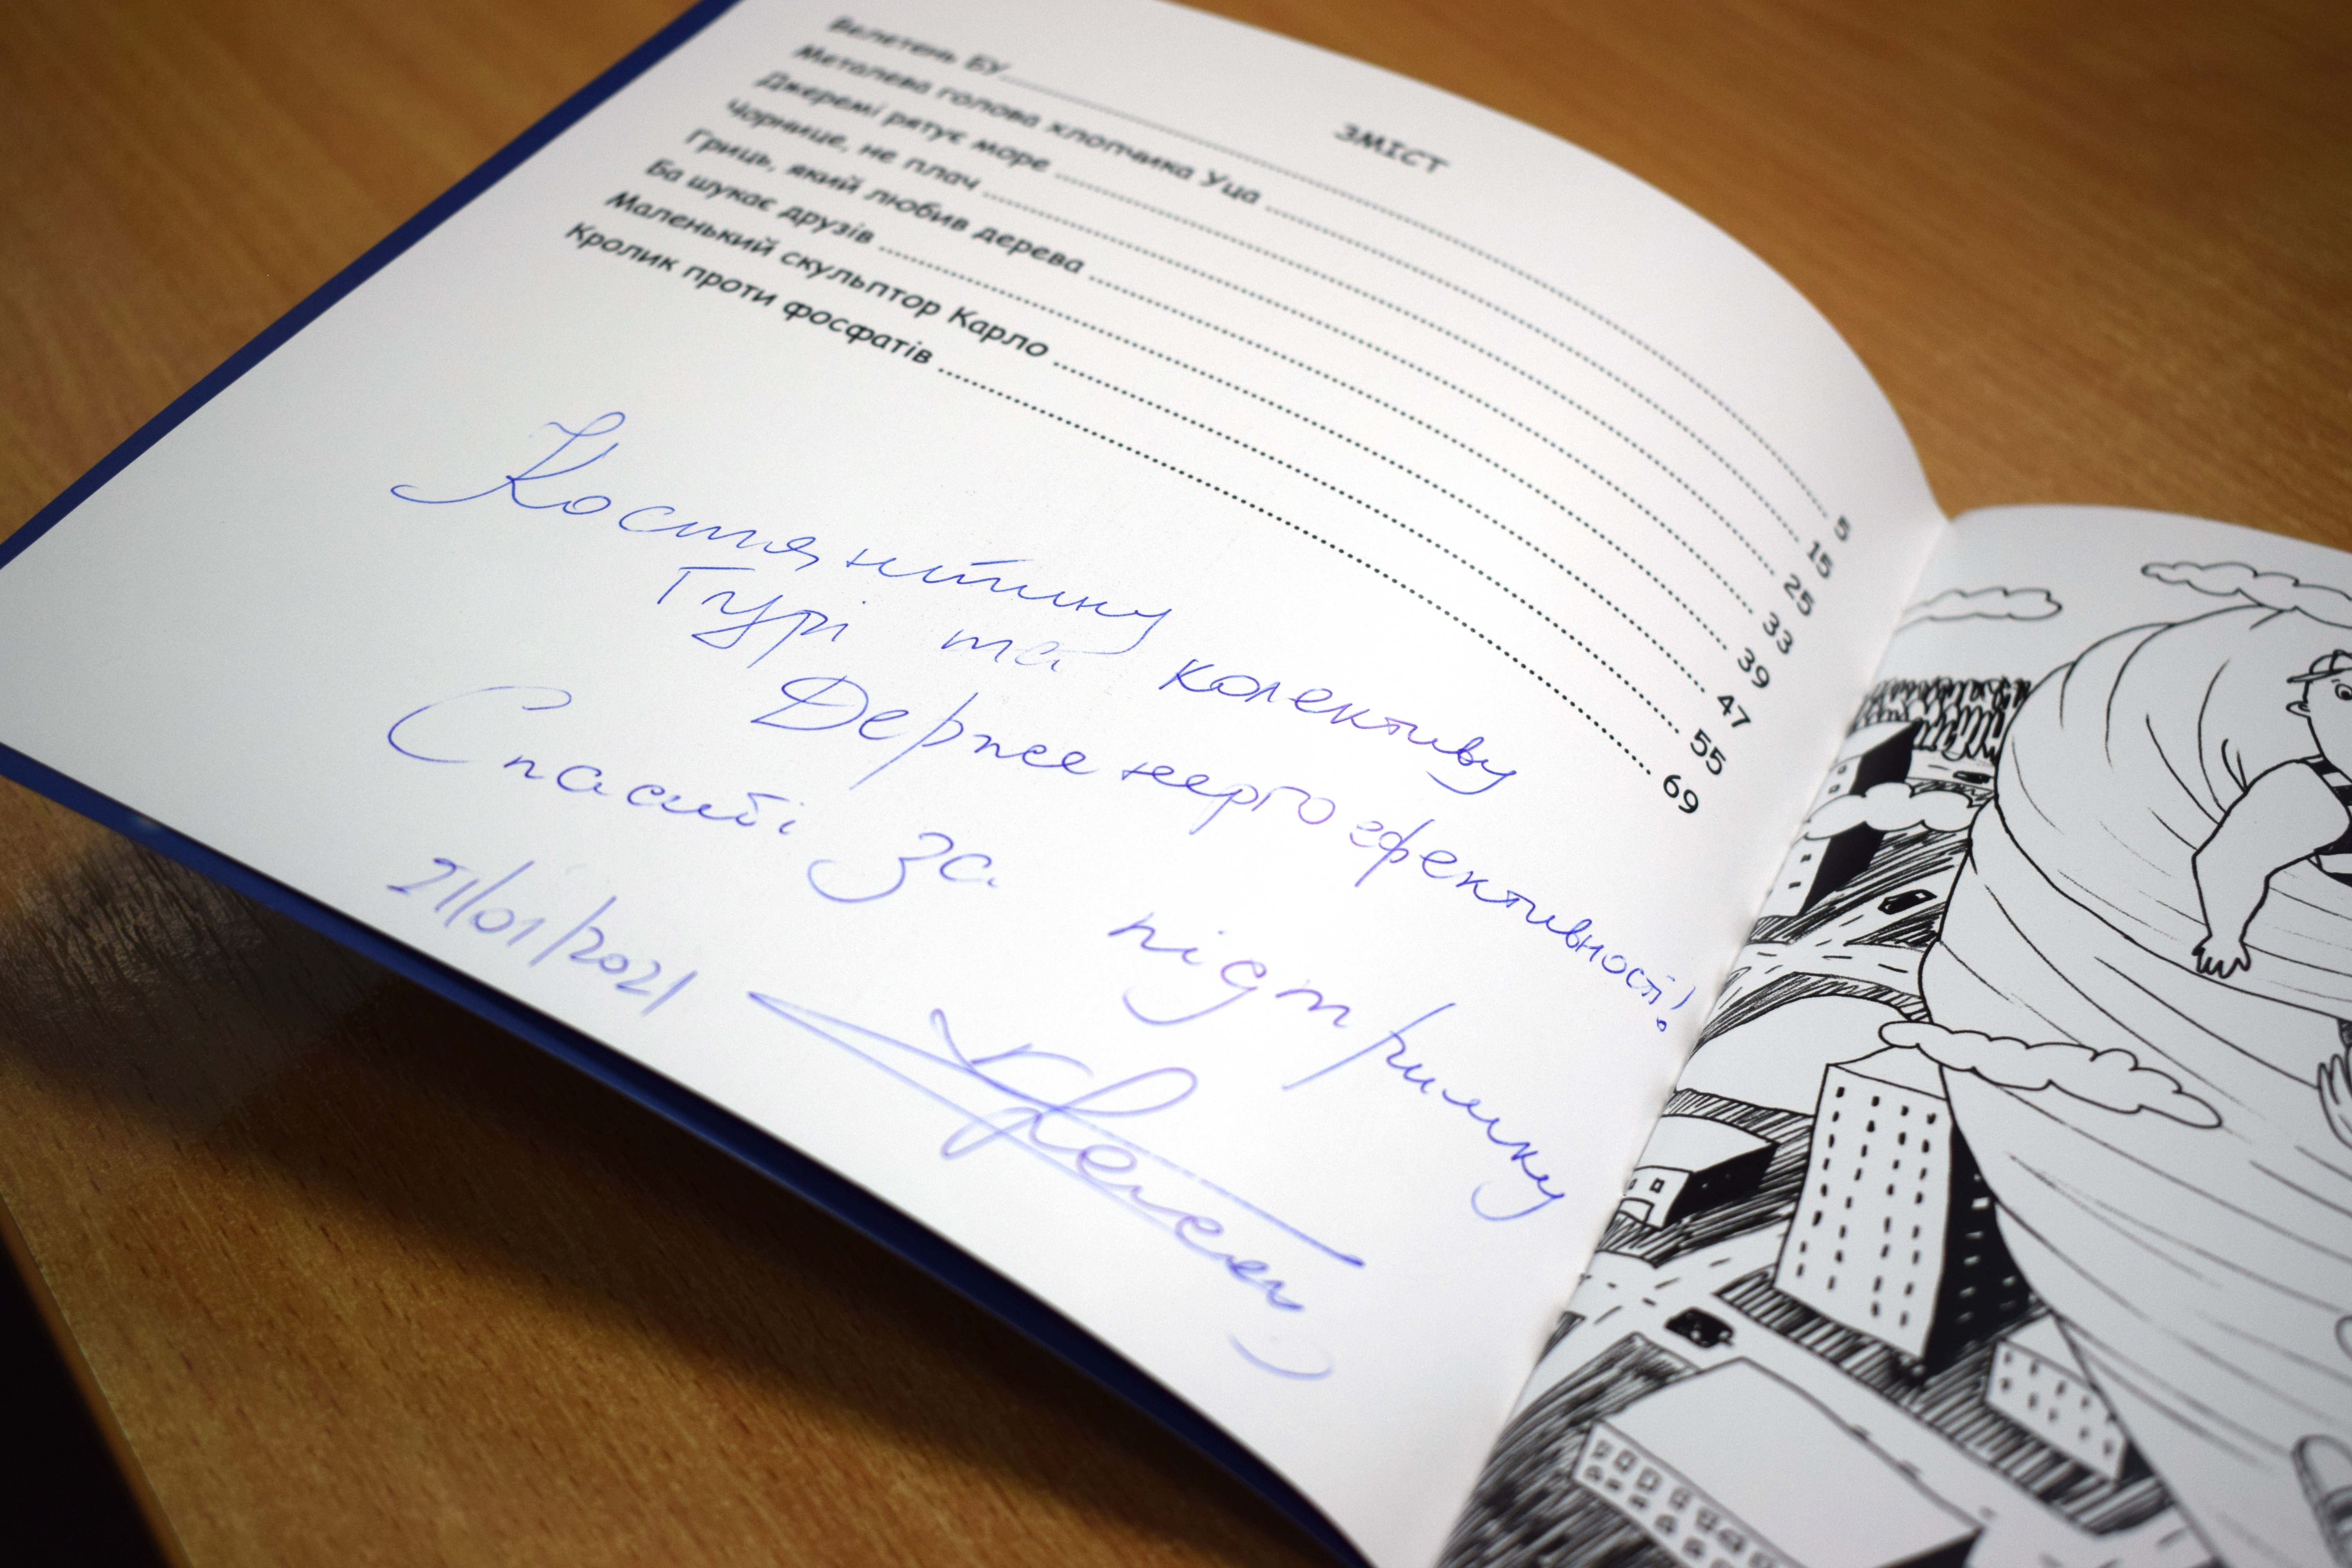 ЗМІСТ
Велетень БУ 5
Металева голова хлопчика Уца 15
Джеремі рятує море 25
Чорнице, не плач 33
Гриць, який любив дерева 39
Ба шукає друзів 47
Маленький скульптор Карло 55
Кролик проти фосфатів 69
Костянтину
Гурі та колективу
Держенергоефективності!
Спасибі за підтримку
21/01/2021